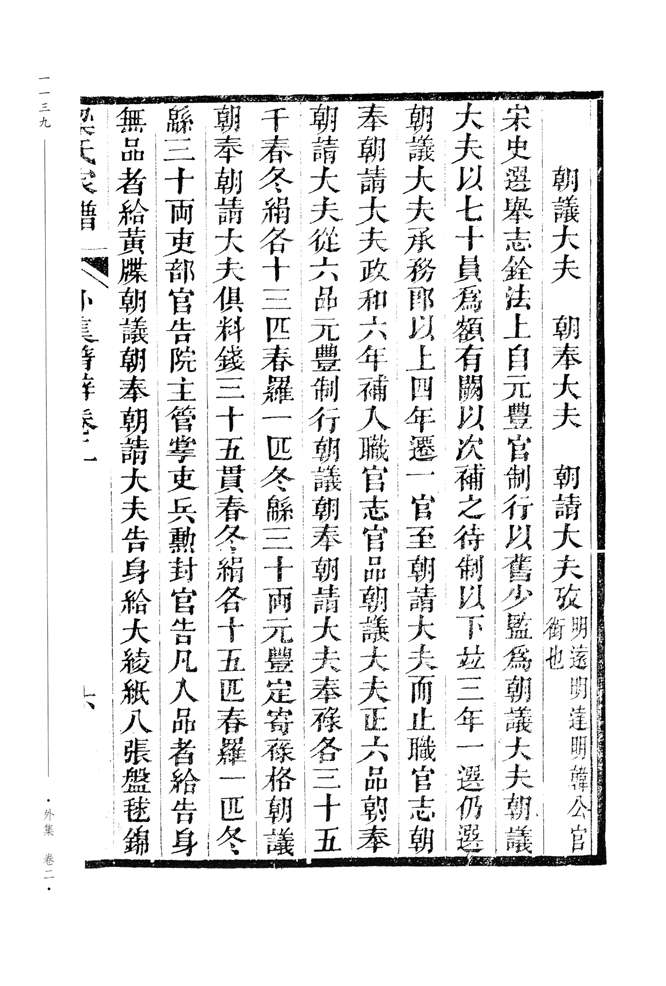 朝議大夫　朝奉大夫　朝請大夫攷明遠明達明韓公官銜也
宋史選舉志銓法上自元豐官制行以舊少監爲朝議大夫朝議
大夫以七十員爲額有闕以次補之待制以下並三年一遷仍選
朝議大夫承務郎以上四年遷一官至朝請大夫而止職官志朝
奉朝請大夫政和六年補入職官志官品朝議大夫正六品朝奉
朝請大夫從六品元豐制行朝議朝奉朝請大夫奉祿各三十五
千春冬絹各十三匹春羅一匹冬緜三十兩元豐定寄祿格朝議
朝奉朝請大夫俱料錢三十五貫春冬絹各十五匹春羅一匹冬
緜三十兩吏部官告院主管掌吏兵勲封官告凡入品者給告身
無品者給黃牒朝議朝奉朝請大夫告身給大綾紙八張盤毬錦
氏家譜　外集　卷二　六
一一三九
·外集　卷二·